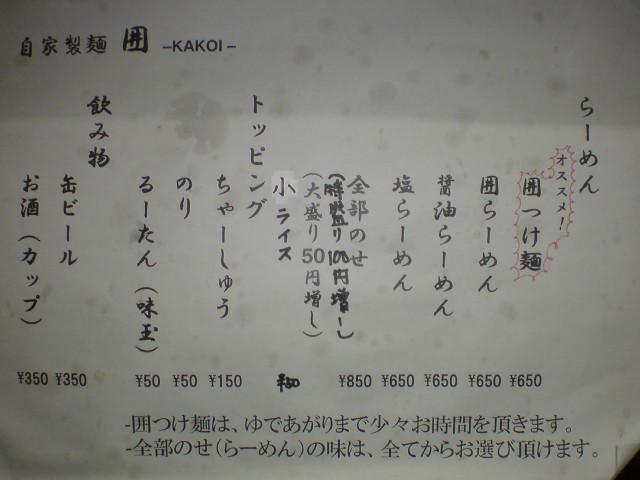 自家製麺 囲 -KAKOI-
らーめん
オススメ!
囲つけ麺 ¥650
囲らーめん ¥650
醤油らーめん ¥650
塩らーめん ¥650
全部のせ ¥850
(大盛り50円増し)
小ライス
トッピング
ちゃーしゅう ¥150
のり ¥50
るーたん(味玉) ¥50
飲み物
缶ビール ¥350
お酒(カップ) ¥350
-囲つけ麺は、ゆであがりまで少々お時間を頂きます。
-全部のせ(らーめん)の味は、全てからお選び頂けます。